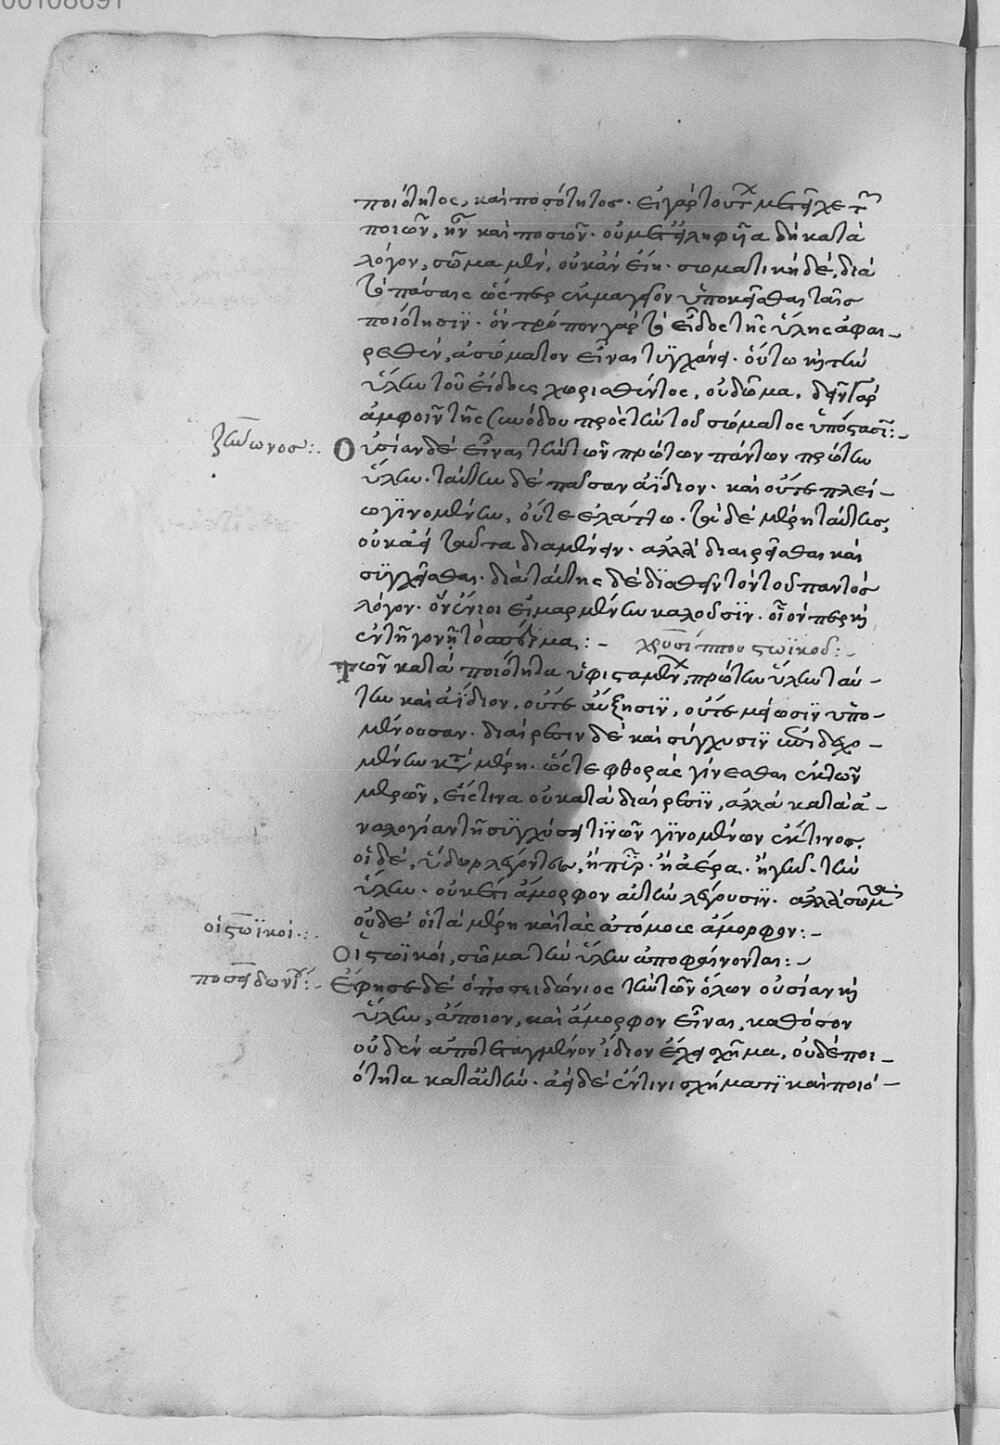 00108691
ποιότητος, καὶ ποσότητος. εἰ γὰρ τούτων μετεῖχε τῶν
ποιῶν, ἦν καὶ ποσῶν. οὐ μετείληφυῖα δὴ κατὰ
λόγον, σῶμα μὲν, οὐκ ἂν εἴη. σωματικὴ δέ, διὰ
τὸ πάσαις ὥσπερ ἐκμαγεῖον ὑποκεῖσθαι ταῖς
ποιότησιν. ὃν τρόπον γὰρ τὸ εἶδος τῆς ὕλης ἀφαι-
ρεθὲν, ἀσώματον εἶναι τυγχάνει. οὕτω καὶ τὴν
ὕλην τοῦ εἴδους χωρισθέντος, οὐ σῶμα. δεῖν γὰρ
ἀμφοῖν τῆς συνόδου πρὸς τὴν τοῦ σώματος ὑπόστασιν:-
ζήνωνος:. Οὐσίαν δὲ εἶναι τὴν τῶν πρώτων πάντων πρώτην
ὕλην. ταύτην δὲ πᾶσαν ἀΐδιον. καὶ οὔτε πλεί-
ω γινομένην, οὔτε ἐλάττω. τὰ δὲ μέρη ταύτης,
οὐκ ἀεὶ ταῦτα διαμένειν. ἀλλὰ διαιρεῖσθαι καὶ
συγχεῖσθαι. διὰ ταύτης δὲ διαθεῖν τὸν τοῦ παντὸς
λόγον. ὃν ἔνιοι εἱμαρμένην καλοῦσιν. οἷόν περ καὶ
ἐν τῇ γονῇ τὸ σπέρμα:- χρυσίππου στωϊκοῦ:-
Τῶν κατὰ ποιότητα ὑφισταμένων, πρώτην ὕλην ταύ-
την καὶ ἀΐδιον, οὔτε αὔξησιν, οὔτε μείωσιν ὑπο-
μένουσαν. διαίρεσιν δὲ καὶ σύγχυσιν ἐπιδεχο-
μένην κατὰ μέρη. ὥστε φθορὰς γίνεσθαι ἐκ τῶν
μερῶν, εἴς τινα οὐ κατὰ διαίρεσιν, ἀλλὰ κατὰ ἀ-
ναλογίαν τῇ συγχύσει τινῶν γινομένων ἔκ τινος.
οἱ δὲ, ὕδωρ λέγοντες, ἢ πῦρ. ἢ ἀέρα. ἢ γῆν. τὴν
ὕλην. οὐκέτι ἄμορφον αὐτὴν λέγουσιν. ἀλλὰ σῶμα
οὐδὲ οἱ τὰ μέρη καὶ τὰς ἀτόμους ἄμορφον:-
οἱ στωϊκοί:. Οἱ στωϊκοί, σῶμα τὴν ὕλην ἀποφαίνονται:-
ποσειδωνίου:- Ἔφησε δὲ ὁ ποσειδώνιος τὴν τῶν ὅλων οὐσίαν καὶ
ὕλην, ἄποιον, καὶ ἄμορφον εἶναι, καθόσον
οὐδὲν ἀποτεταγμένον ἴδιον ἔχει σχῆμα, οὐδὲ ποι-
ότητα κατ' αὐτήν. ἀεὶ δὲ ἔν τινι σχήματι καὶ ποιό-